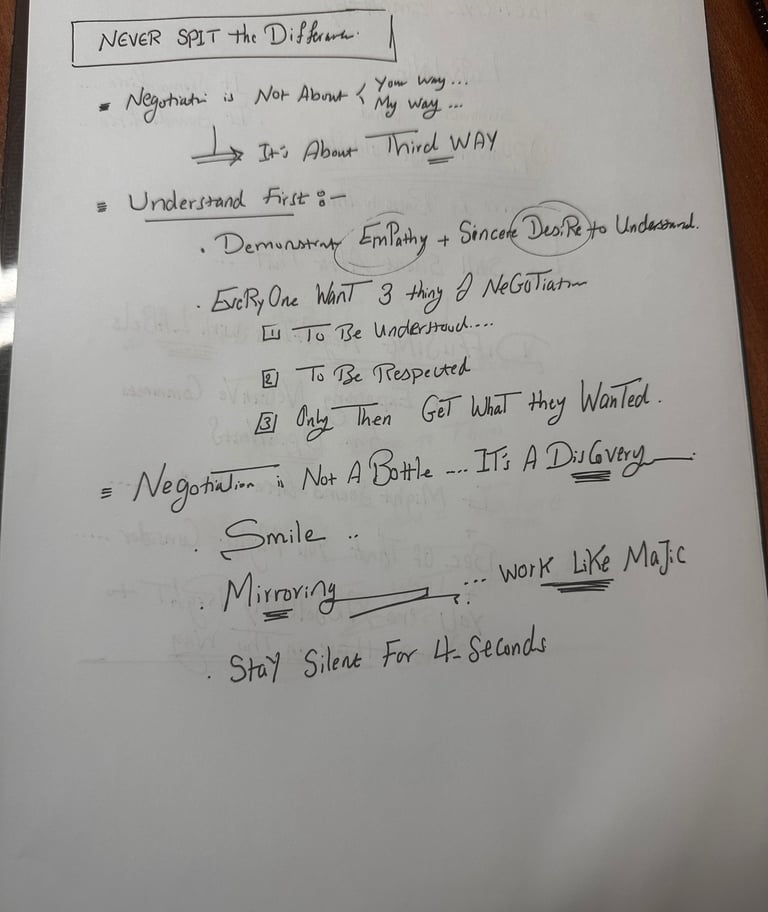 NEVER SPIT the Difference.
Negotiation is Not About < Your Way...
My Way...
It's About Third WAY
Understand First :-
. Demonstrate EmPathy + Sincere DesiRe to Understand.
. EveRyOne WanT 3 thing of NeGoTiation
[1] To Be Understood....
[2] To Be Respected
[3] Only Then GeT WhaT they WanTed.
Negotiation is Not A Bottle .... IT's A DisCovery
. Smile ..
. Mirroring ... work LiKe MaJic
. StaY Silent For 4-Seconds